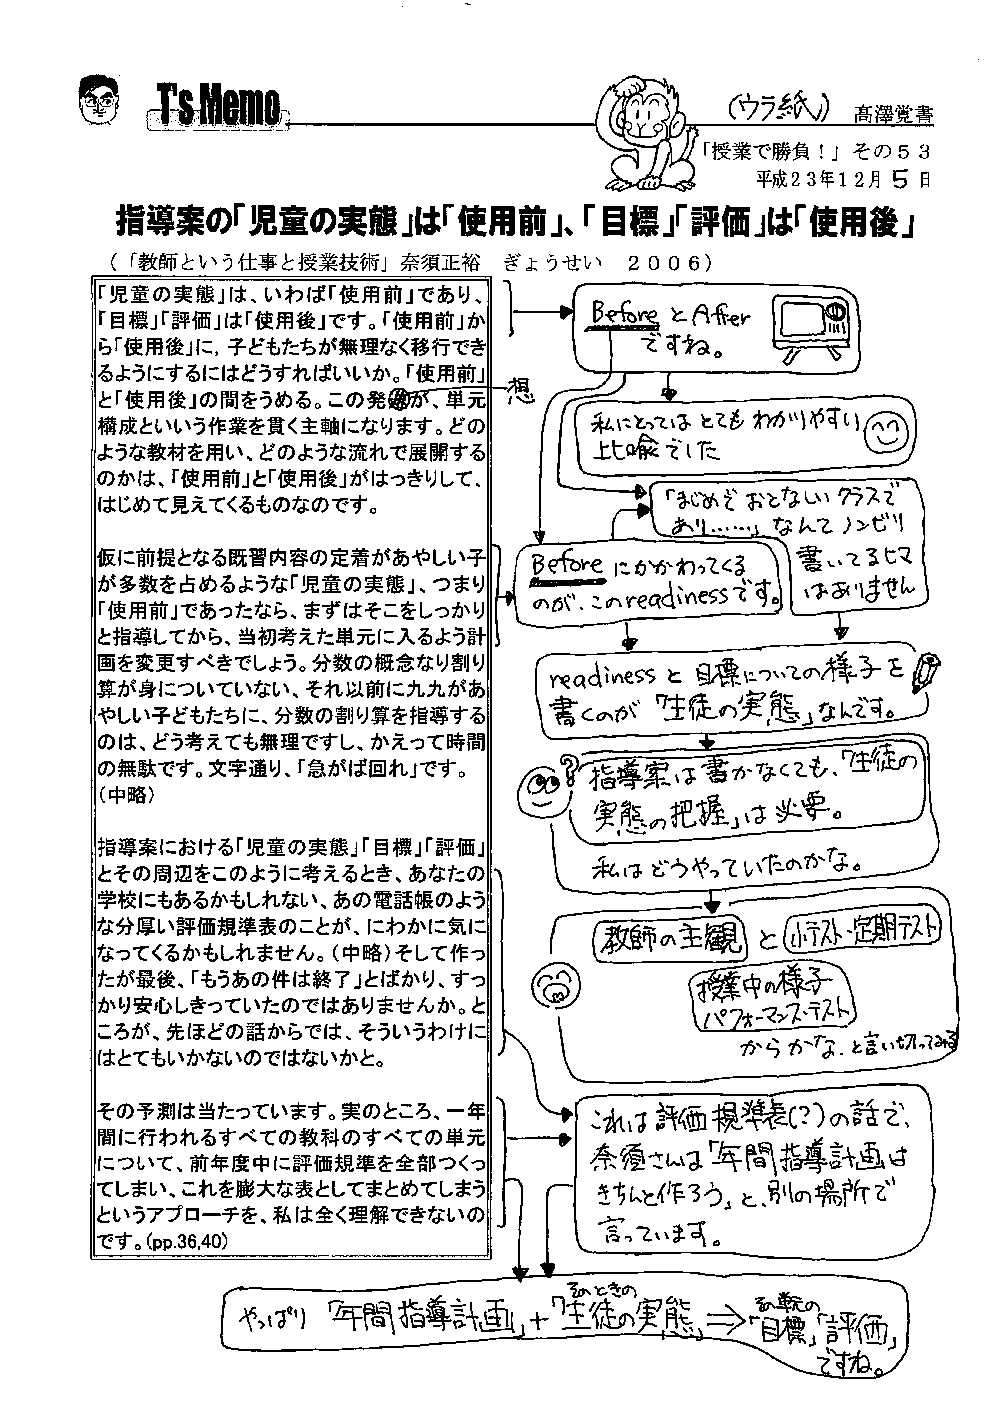 T's Memo
(ウラ紙)
髙澤覚書
「授業で勝負!」その53
平成23年12月5日
指導案の「児童の実態」は「使用前」、「目標」「評価」は「使用後」
(「教師という仕事と授業技術」奈須正裕　ぎょうせい　2006)
「児童の実態」は、いわば「使用前」であり、
「目標」「評価」は「使用後」です。「使用前」か
ら「使用後」に, 子どもたちが無理なく移行でき
るようにするにはどうすればいいか。「使用前」
と「使用後」の間をうめる。この発が、単元
想
構成といいう作業を貫く主軸になります。どの
ような教材を用い、どのような流れで展開する
のかは、「使用前」と「使用後」がはっきりして、
はじめて見えてくるものなのです。
仮に前提となる既習内容の定着があやしい子
が多数を占めるような「児童の実態」、つまり
「使用前」であったなら、まずはそこをしっかり
と指導してから、当初考えた単元に入るよう計
画を変更すべきでしょう。分数の概念なり割り
算が身についていない、それ以前に九九があ
やしい子どもたちに、分数の割り算を指導する
のは、どう考えても無理ですし、かえって時間
の無駄です。文字通り、「急がば回れ」です。
(中略)
指導案における「児童の実態」「目標」「評価」
とその周辺をこのように考えるとき、あなたの
学校にもあるかもしれない、あの電話帳のよう
な分厚い評価規準表のことが、にわかに気に
なってくるかもしれません。(中略)そして作っ
たが最後、「もうあの件は終了」とばかり、すっ
かり安心しきっていたのではありませんか。と
ころが、先ほどの話からでは、そういうわけに
はとてもいかないのではないかと。
その予測は当たっています。実のところ、一年
間に行われるすべての教科のすべての単元
について、前年度中に評価規準を全部つくっ
てしまい、これを膨大な表としてまとめてしまう
というアプローチを、私は全く理解できないの
です。(pp.36,40)
BeforeとAfter
ですね。
私にとっては とても わかりやすい
比喩でした
「まじめで おとなしい クラスで
あり……」なんてノンビリ
書いてるヒマ
はありません
Beforeにかかわってくる
のが、このreadinessです。
readinessと目標についての様子を
書くのが「生徒の実態」なんです。
?
指導案は書かなくても、「生徒の
実態の把握」は必要。
私はどうやっていたのかな。
教師の主観 と 小テスト・定期テスト
授業中の様子
パフォーマンス・テスト
からかな、と言い切ってみる
これは評価規準表(?)の話で、
奈須さんは「年間指導計画は
きちんと作ろう」と、別の場所で
言っています。
そのときの
やっぱり「年間指導計画」+「生徒の実態」⇒「目標」「評価」
ですね。